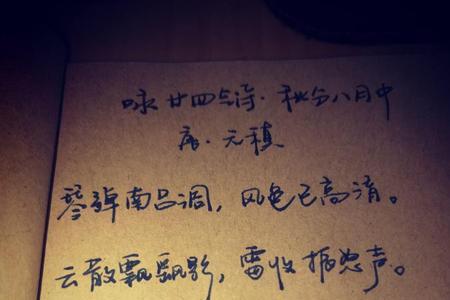 咏廿四气诗·秋分八月中
唐·元稹
琴弹南吕调，风色已高清。
云散飘飖影，雷收振怒声。